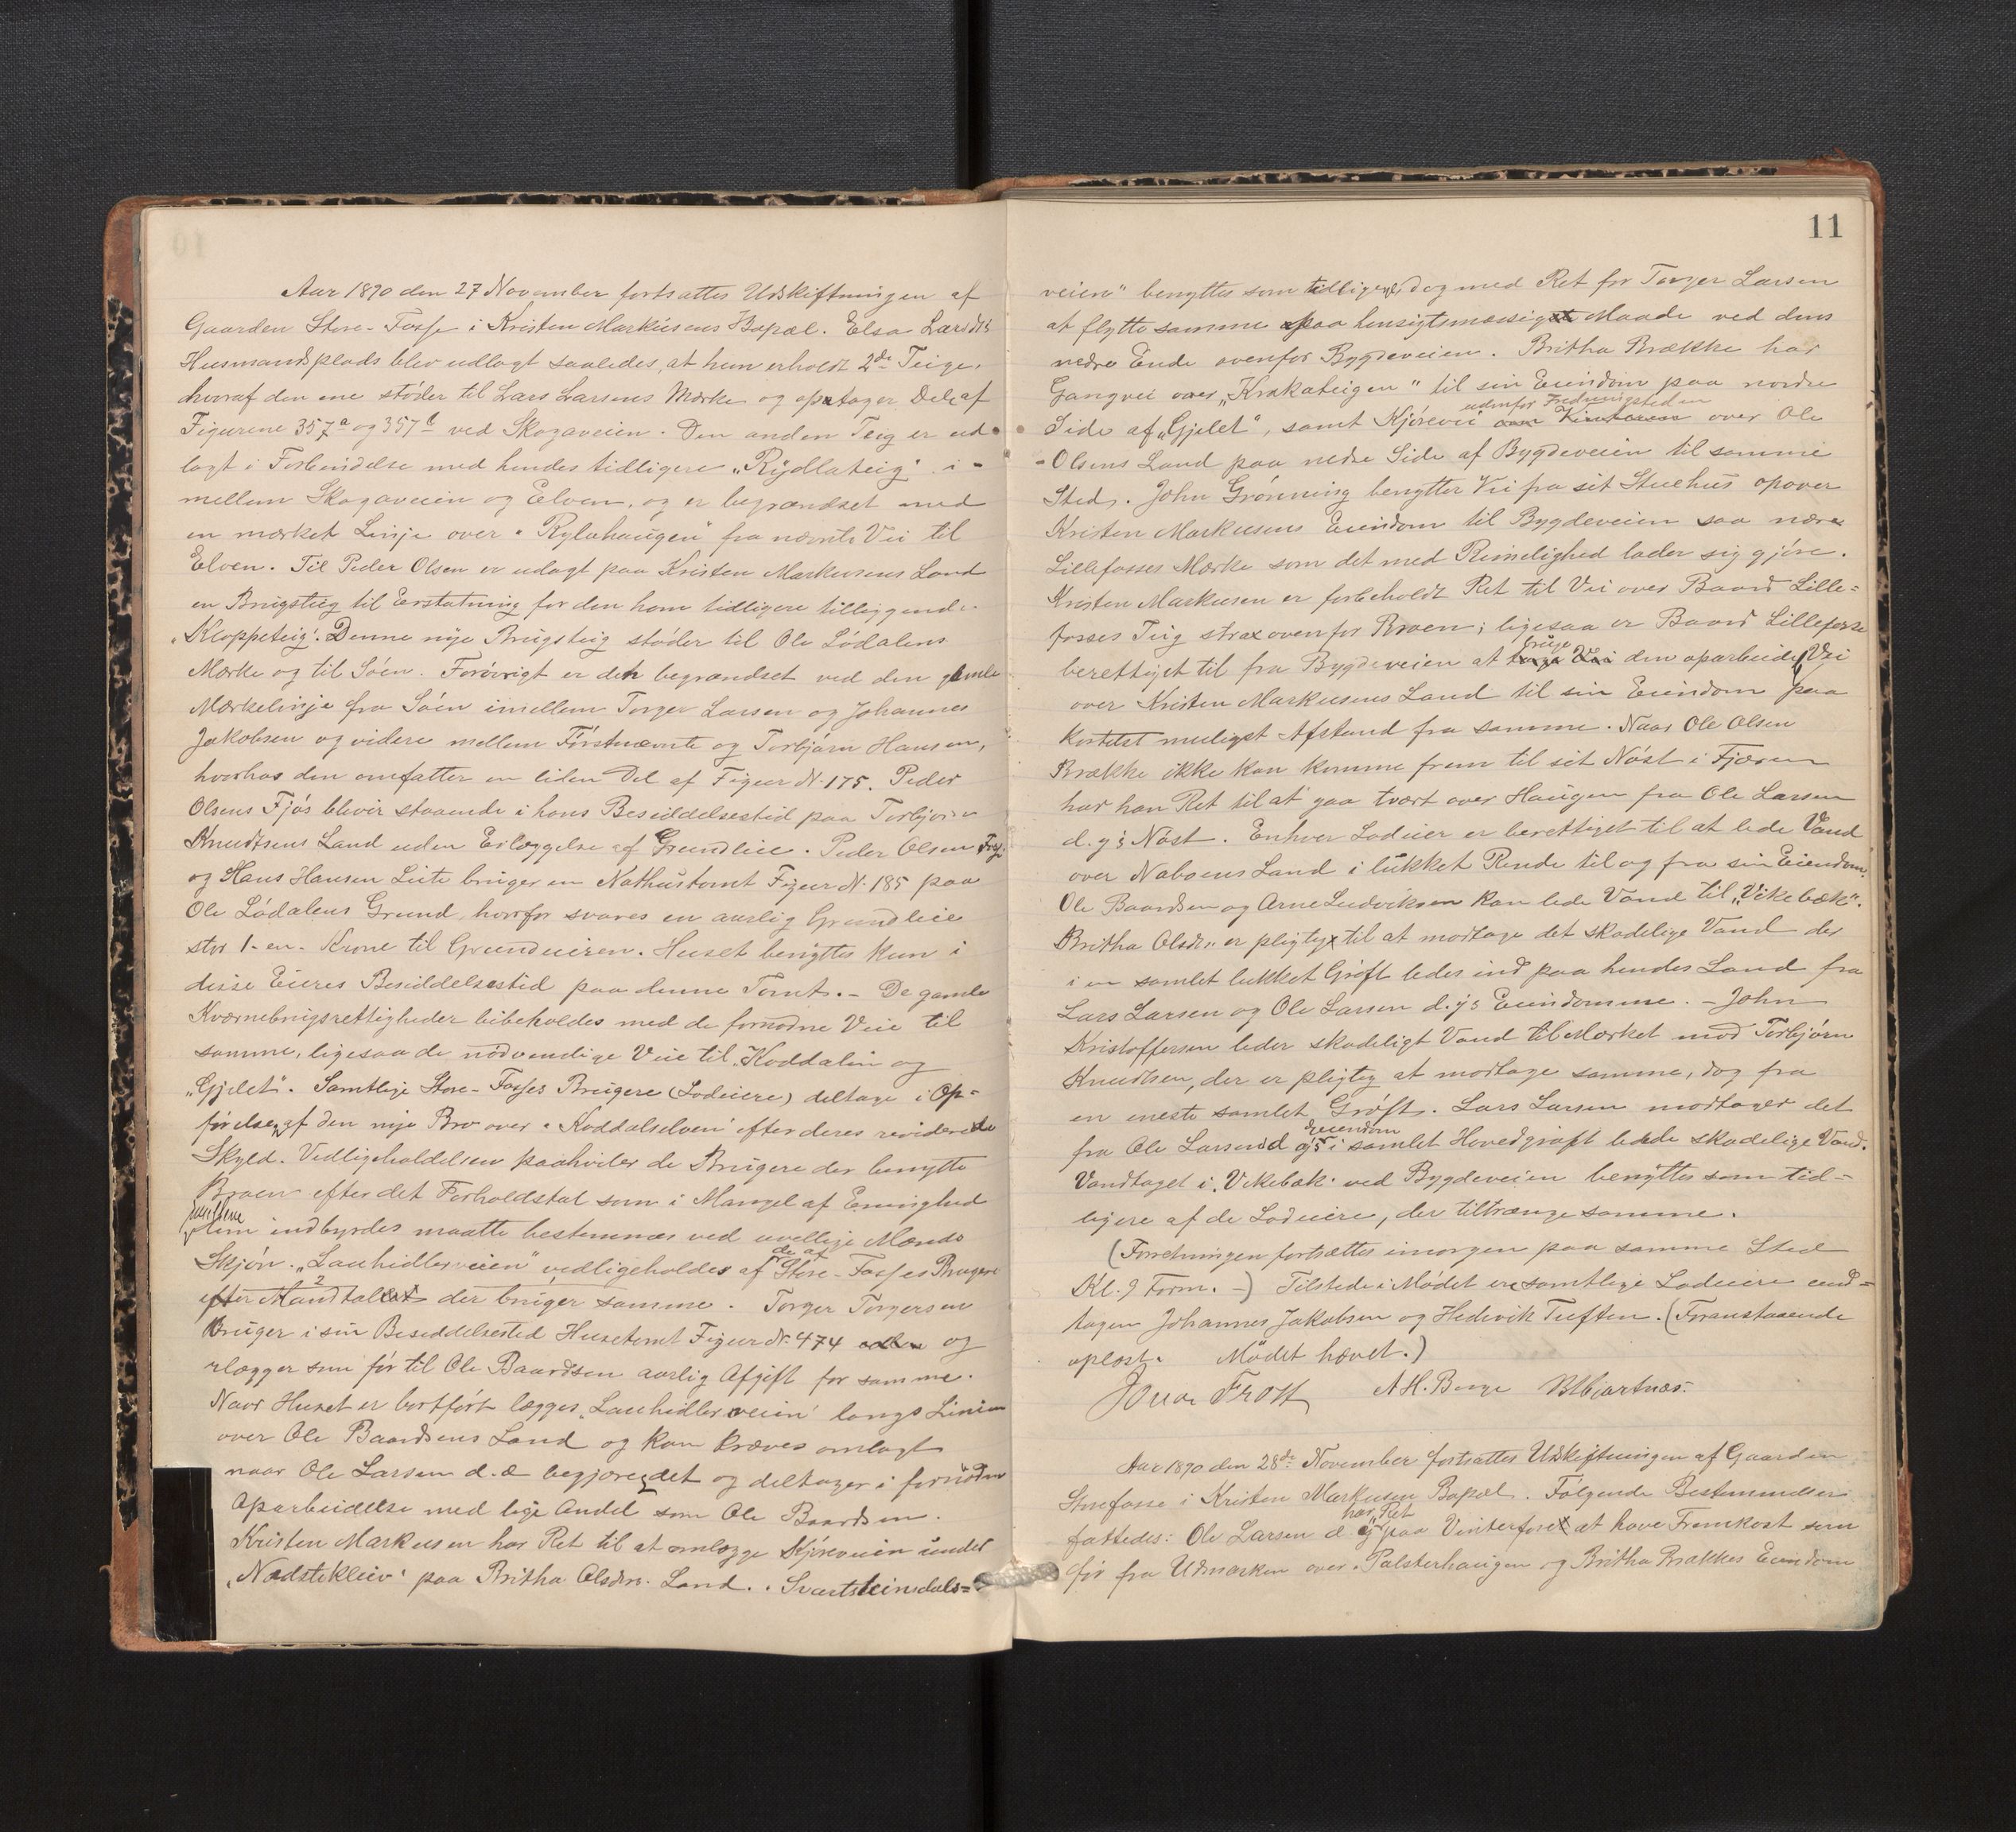 Aar 1890 den 27 November fortsattes Udskiftningen af
Gaarden Store-Fosse i Kristen Markusens Bopæl. Elsa Larsdtrs
Husmandsplads blev udlagt saaledes, at hun erholdt 2de Teige,
hvoraf den ene støder til Lars Larsens Mærke og optager Dele af
Figurene 357a og 357b ved Skogaveien. Den anden Teig er ud-
lagt i Forbindelse med hendes tidligere „Rydlateig" i-
mellem Skogaveien og Elven, og er begrændset med
en mærket Linje over „Rylahaugen" fra nævnte Vei til
Elven. Til Peder Olsen er udlagt paa Kristen Markusens Land
en Brugsteig til Erstatning for den ham tidligere tilliggende
„Kloppeteig". Denne nye Brugsteig støder til Ole Lødalens
Mærke og til Søen. Forøvrigt er den begrændset ved den gamle
Mærkelinje fra Søen imellem Torger Larsen og Johannes
Jakobsen og videre mellem Førstnævnte og Torbjørn Hansen,
hvorhos den omfatter en liden Del af Figur N. 175. Peder
Olsens Fjøs bliver staaende i hans Besiddelsestid paa Torbjørn
Knudtsens Land uden Erlæggelse af Grundleie. Peder Olsen Fosse
og Hans Hansen Liete bruger en Nøthustomt Figur N. 185 paa
Ole Lødalens Grund, hvorfor svares en aarlig Grundleie
stor 1-en- Krone til Grundeieren. Huset benyttes kun i
disse Eieres Besiddelsestid paa denne Tomt. - De gamle
Kværnebrugsrettigheder bibeholdes med de fornødne Veie til
samme, ligesaa de nødvendige Veie til „Koddalen og
„Gjelet". Samtlige Store-Fosses Brugere (Lodeiere) deltage i Op-
førelsen af den nye Bro over „Koddalselven" efter deres reviderede
Skyld. Vedligeholdelsen paahviler de Brugere der benytte
Broen efter det Forholdstal som i Mangel af Enninghed
mellem
dem indbyrdes maatte bestemmes ved uvillige Mænds
de af
Skjøn. „Lauhidlerveien" vedligeholdes af Store-Fosses Brugere
efter Mandtallet der bruger samme. Torger Torgersen
Bruger i sin Besiddelsestid Husetomt Figur N. 474 og
erlægger som før til Ole Baardsen aarlig Afgift for samme.
Naar Huset er bortført lægges „Lauhidlerveien" langs Linien
over Ole Baardsens Land og kan kræves omlagt
naar Ole Larsen d. æ begjærer det og deltager i fornøden
Oparbeidelse med lige Andel som Ole Baardsen.
Kristen Markusen har Ret til at omlægge Kjøreveien under
„Nedstekleiv" paa Britha Olsdtrs. Land. „Svartsteinsdals=
11
veien" benyttes som tidligere, dog med Ret for Torger Larsen
at flytte samme paa hensigtsmæssig Maade ved dens
nedre Ende ovenfor Bygdeveien. Britha Brække har
Gangvei over „Krakateigen" til sin Eiendom paa nordre
udenfor Fredningstiden
Side af „Gjelet", samt Kjørevei over Ole
-Olsens Land paa nedre Side af Bygdeveien til samme
Sted. John Grønning benytter Vei fra sit Stuehus opover
Kristen Markusens Eiendom til Bygdeveien saa nære
Lillefosses Mærke som det med Rimelighed lader sig gjøre.
Kristen Markusen er forbeholdt Ret til Vei over Baard Lille=
fosses Teig strax ovenfor Broen; ligesaa er Baard Lillefosse
bruge
berettiget til fra Bygdeveien at den oparbeidede Vei
over Kristen Markusens Land til sin Eiendom paa
kortest muligst Afstand fra samme. Naar Ole Olsen
Brække ikke kan komme frem til sit Nøst i Fjæren
har han Ret til at gaa tvært over Haugen fra Ole Larsen
d. y's Nøst. Enhver Lodeier er berettiget til at lede Vand
over Naboens Land i lukket Rende til og fra sin Eiendom.
Ole Baardsen og Arne Ludviksen kan lede Vand til „Vikebæk".
Britha Olsdtr. er pligtig til at modtage det skadelige Vand der
i en samlet lukket Grøft ledes ind paa hendes Land fra
Lars Larsen og Ole Larsen d. y's Eiendomme. - John
Kristoffersen leder skadeligt Vand til Mærket mod Torbjørn
Knudtsen, der er pligtig at modtage samme, dog fra
en eneste samlet Grøft. Lars Larsen modtager det
Eiendom
fra Ole Larsen d y's i samlet Hovedgrøft ledede skadelige Vand.
Vandtaget i „Vikebæk" ved Bygdeveien benyttes som tid-
ligere af de Lodeiere, der tiltrænge samme.
(Forretningen fortsættes imorgen paa samme Sted
Kl. 9 Form. -) Tilstede i Mødet ere samtlige Lodeiere und=
tagen Johannes Jakobsen og Hedevik Tuften. (Foranstaaende
oplæst. Mødet hævet.)
Jonas Frost A H. Berge
Aar 1890 den 28de November fortsattes Udskiftningen af Gaarden
Storefosse i Kristen Markusen Bopæl. Følgende Bestemmelser
har Ret
fattedes: Ole Larsen d. y paa Vinterføre at have Fremkost som
før fra Udmarken over „Palsterhaugen og Britha Brækkes Eiendom